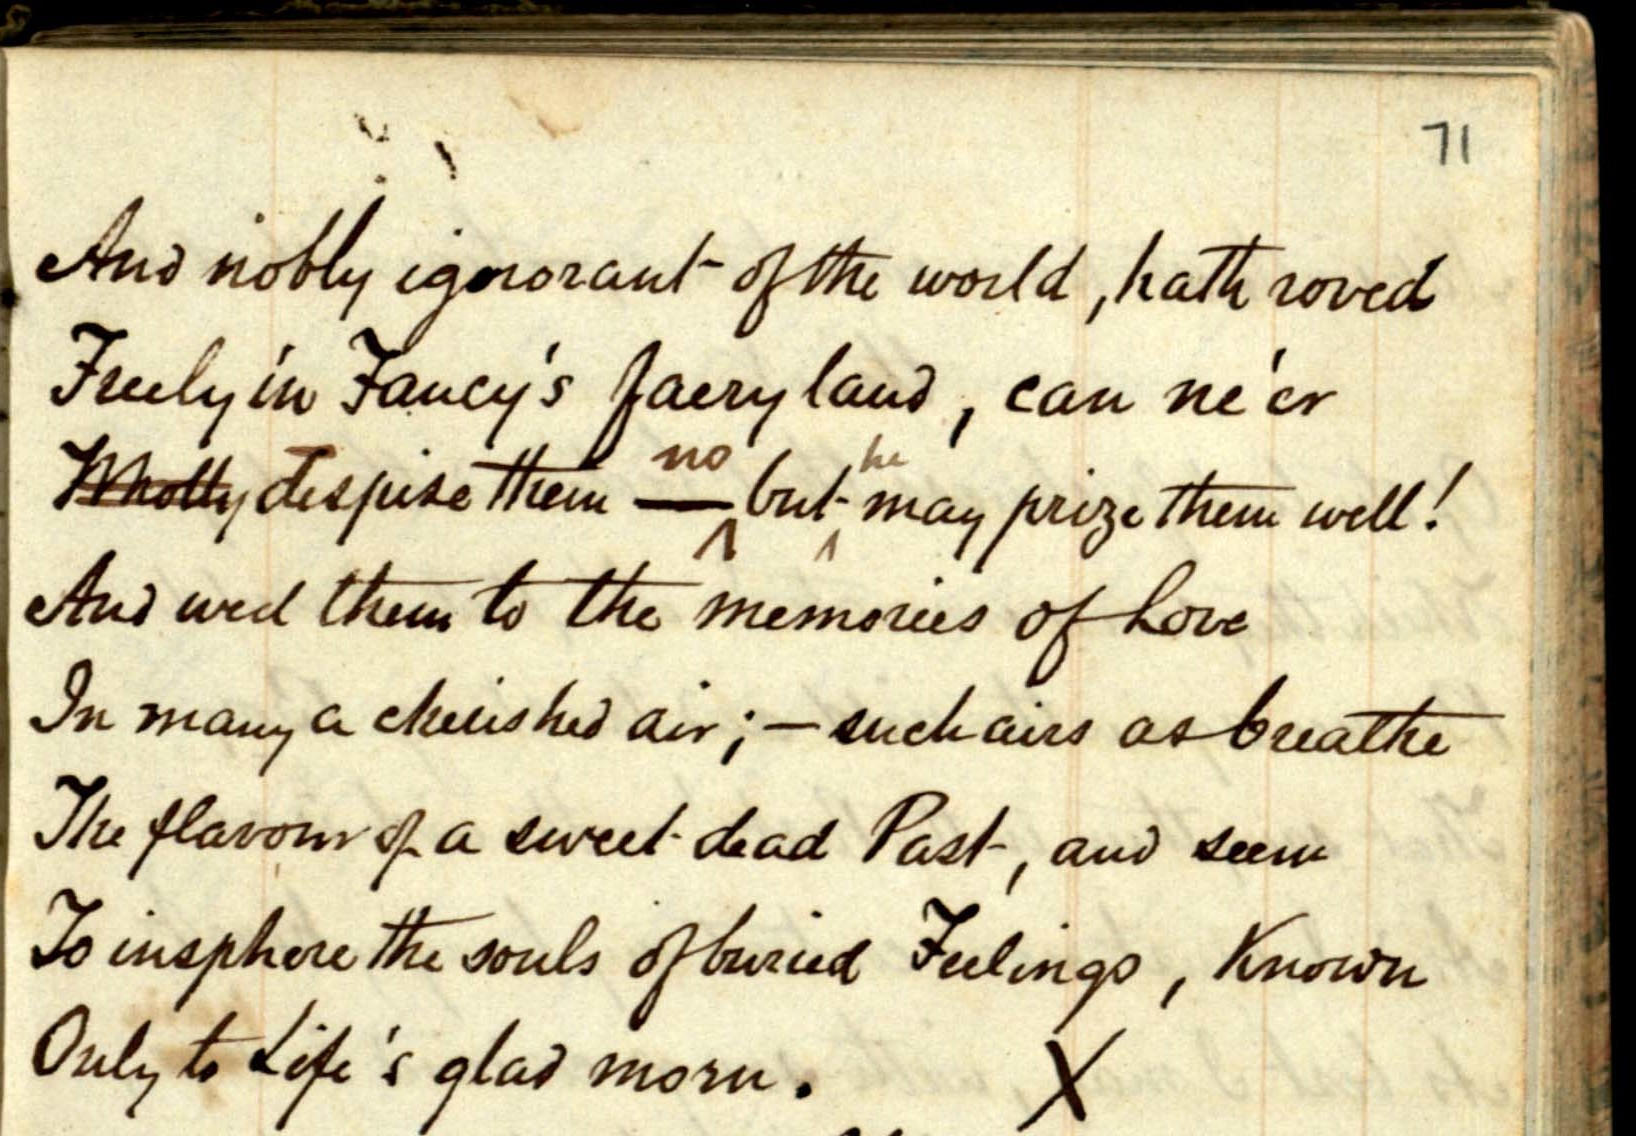 71
And nobly ignorant of the world, hath roved
Freely in Fancy's faery land, can ne'er
Wholly despise them — no but he may prize them well!
And wed them to the memories of Love
In many a cherished air; — such airs as breathe
The flavour of a sweet dead Past, and seem
To insphere the souls of buried Feelings, Known
Only to Life's glad morn. X